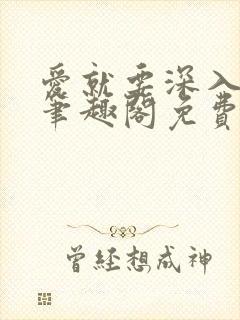 愛就要深入
筆趣閣免費
曾經想成神